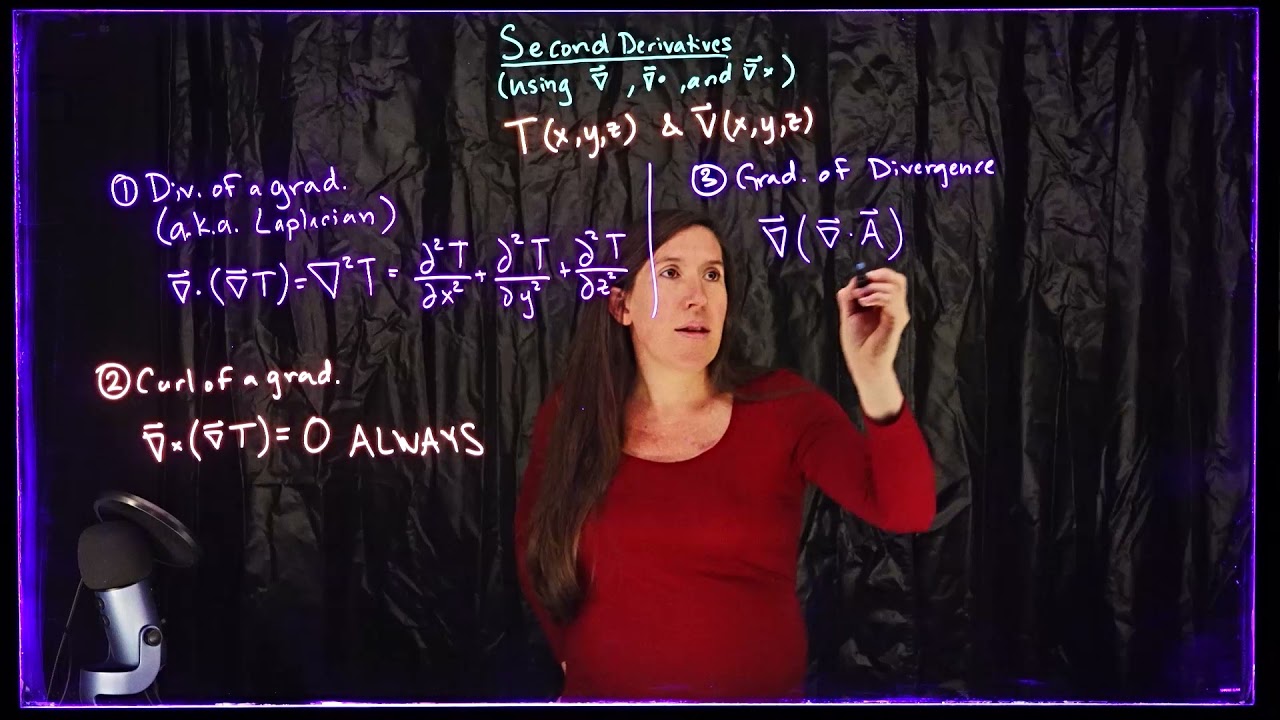 Second Derivatives
(using ∇⃗ , ∇⃗• , and ∇⃗× )
T(x,y,z) & V⃗(x,y,z)
① Div. of a grad.
(a.k.a. Laplacian)
∇⃗·(∇⃗T) = ∇²T = ∂²T/∂x² + ∂²T/∂y² + ∂²T/∂z²
② Curl of a grad.
∇⃗×(∇⃗T) = 0 ALWAYS
③ Grad. of Divergence
∇⃗(∇⃗·A⃗)